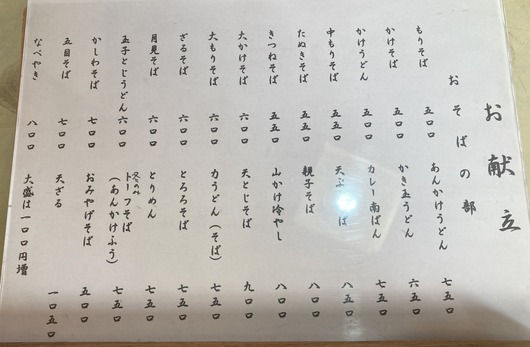 お献立
おそばの部
もりそば 五〇〇
かけそば 五〇〇
かけうどん 五〇〇
中もりそば 五五〇
たぬきそば 五五〇
きつねそば 五五〇
大かけそば 六〇〇
大もりそば 六〇〇
ざるそば 六〇〇
月見そば 六〇〇
玉子とじうどん 六〇〇
かしわそば 七〇〇
五目そば 七〇〇
なべやき 八〇〇
あんかけうどん 七五〇
かき玉うどん 六五〇
カレー南ばん 七五〇
天ぷ そば 八五〇
親子そば 八〇〇
山かけ冷やし 八〇〇
天とじそば 九〇〇
力うどん(そば) 七五〇
とろろそば 七五〇
とりめん 七五〇
冬のみ
トーフそば
(あんかけふう) 七五〇
おみやげそば 五〇〇
天ざる 一〇五〇
大盛は一〇〇円増